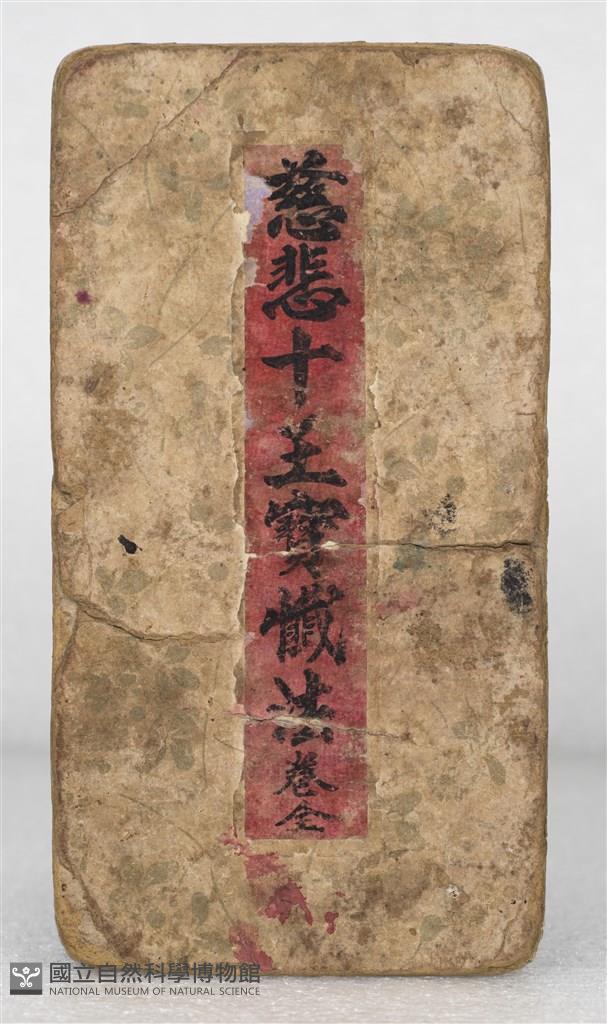 慈悲十王寳懺法卷全
國立自然科學博物館
NATIONAL MUSEUM OF NATURAL SCIENCE